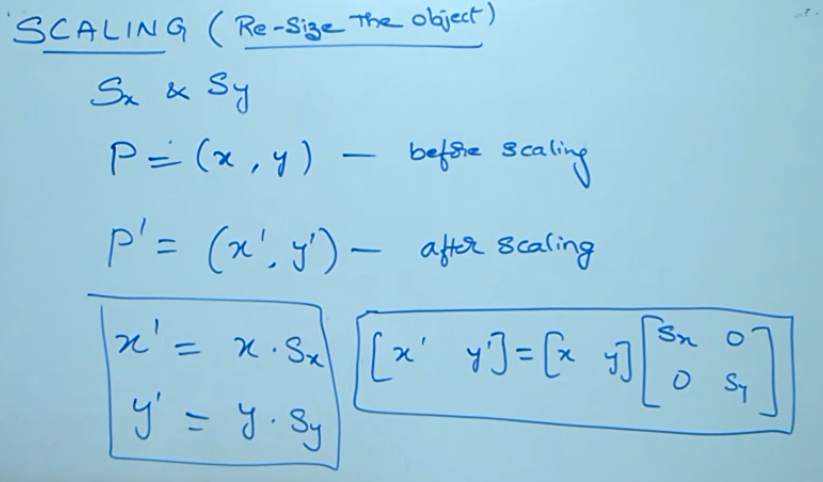 SCALING (Re-Size The object)
Sx & Sy
P = (x, y) — before scaling
P' = (x', y') — after scaling
x' = x · Sx
y' = y · Sy
[x' y'] = [x y] [Sx 0
0 Sy]